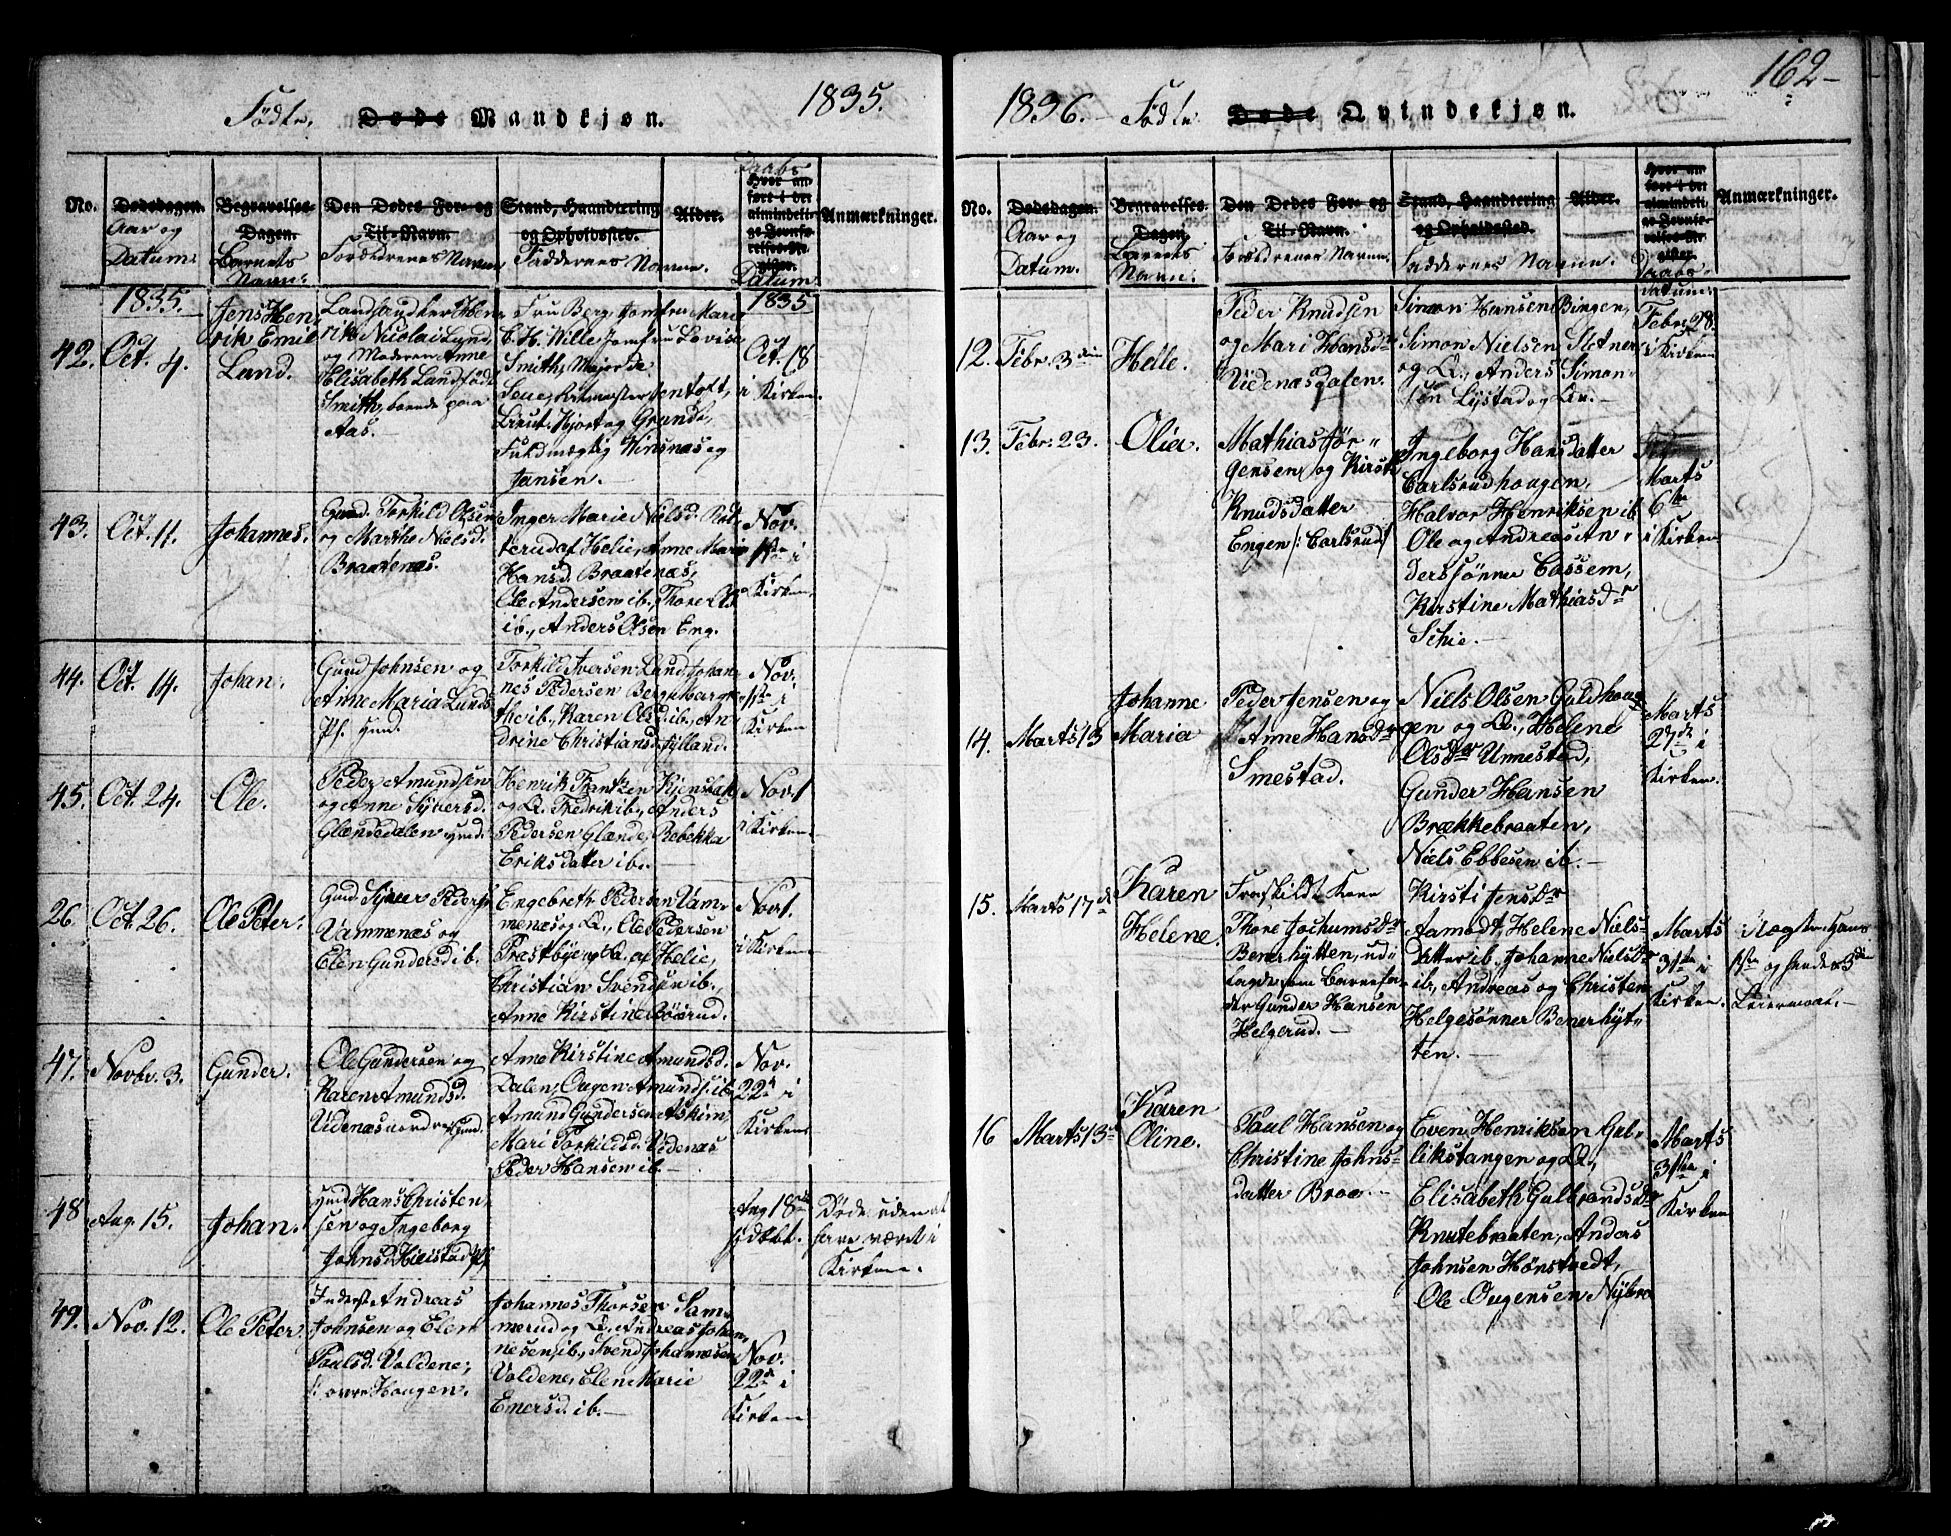 162-
1835.
Fødte. Døde Mandkjøn.
No.
Dødsdagen.
Aar og
Datum.
Begravelses-
Dagen.
Barnets
Navn.
Den Dødes For- og
Til-Navn.
Forældrenes Navne
Stand, Haandtering
og Opholdssted.
Faddernes Navne.
Alder.
Daabs
Hvor an-
ført i det
almindeli-
ge Jevnfø-
relses-Re-
gister.
Datum.
Anmærkninger.
1835.
42.
Oct. 4.
Jens Hen
rik Emil
Lund.
Landhandler Hen
rik Nicolai Lund
og Moderen Anne
Elisabeth Lund født
Smith, boende paa
Aas.
Fru Berg, Jomfru Marie
C. H. Wille, Jomfru Lovise
Smith, Major de
Seue, Ritmester Sentoft,
Lieut. Hjort og Grande,
Fuldmægtig Winsnæs og
Jansen.
1835
Oct. 18
i Kirken.
43.
Oct. 11.
Johannes.
Gmd. Torkild Olsen
og Marthe Nielsd.
Braatenæs.
Inger Marie Nielsd. Rat
terud af Helie, Anne Marie
Hansd. Braatenæs,
Ole Andersen ib., Thore Ols
ib., Anders Olsen Eng.
Nov.
1ste i
Kirken.
44.
Oct. 14.
Johan.
Gmd Johnsen og
Anne Maria Lunds
Pf. Hmd.
Torkild Iversen Lund, Johan
nes Pedersen Berg, Margre
the ib., Karen Olsd ib., An
drine Christiansd. Jylland.
Nov.
1ste i
Kirken
45.
Oct. 24.
Ole.
Peder Amundsen
og Anne Syversd.
Glændedalen Hmd.
Henrik Frantzen Kjensbak
og Q., Fredrik ib., Anders
Pedersen Glænde, Rebekka
Eriksdatter ib.
Nov. 1
i Kirken.
26.
Oct. 26.
Ole Peter.
Gmd Syver Peders.
Vammenæs og
Elen Gundersd ib.
Engebreth Pedersen Vam-
menæs og Q., Ole Pedersen
Præstbye og Q. af Helie,
Christian Svendsen ib.,
Anne Kirstine Böerud.
Nov. 1.
i Kirken
47.
Novbr. 3.
Gunder.
Ole Gundersen og
Karen Amundsd.
Videnæs nordre Gmd.
Anne Kirstine Amundsd.
Dalen, Ougen Amunds. ib
Amund Gundersen Askim,
Mari Torkildsd. Videnæs
Peder Hansen ib.
Nov.
22d i
Kirken
48
Aug. 15.
Johan.
Hmd Hans Christen
sen og Ingeborg
Johnsd. Heistad Pf.
Aug 18de
hjdbt.
Døde uden at
have været i
Kirken.
49.
Nov. 12.
Ole Peter
Inderst Andreas
Johnsen og Elen
Paulsd. Voldene,
/: øvre Hougen.
Johannes Thorsen Sam-
merud og Q., Andreas Johan
nesen ib., Svend Johannesen
Voldene, Elen Marie
Emersd. ib.
Nov.
22d i
Kirken
1836. Fødte Døde Qvindekjøn.
No.
Dødsdagen.
Aar og
Datum.
Begravelses-
Dagen.
Barnets
Navn.
Den Dødes For- og
Til-Navn.
Forældrenes Navne.
Stand, Haandtering
og Opholdssted.
Faddernes Navne.
Alder.
Hvor an-
ført i det
almindeli-
ge Jevnfø-
relses-Re-
gister.
Daabs-
Datum.
Anmærkninger.
12.
Febr. 3die
Helle.
Peder Knudsen
og Mari Hansdr
Videnæsdalen.
Simon Hansen Bingen,
Simon Nielsen Sletner
og Q., Anders Simon-
sen Lystad og Qv.
Febr. 28.
i Kirken
13.
Febr. 23.
Olia.
Mathias Jør-
gensen og Kirsti
Knudsdatter
Engen /: Carlsrud/
Ingeborg Hansdatter
Carlsrudhougen,
Halvor Henriksen ib
Ole og Andreas An-
derssønner Cassem,
Kirstine Mathiasdr
Schie.
Marts
6te
i Kirken
14.
Marts 13
Johanne
Maria
Peder Jensen og
Anne Hansdr
Smestad.
Niels Olsen Guldhoug
gen og Q., Helene
Olsdr Unnestad,
Gunder Hansen
Brækkebraaten,
Niels Ebbesen ib.
Marts
27de i
Kirken.
15.
Marts 17de
Karen
Helene.
Fraskildt Kone
Thore Jochumsdr
Benerhytten, ud-
lagde som Barnefa-
der Gunder Hansen
Helgerud.
Kirsti Jensdr
Aamodt, Helene Niels-
datter ib., Johanne Nielsdr
ib., Andreas og Christen
Helgesønner Benerhyt-
ten.
Marts
31te i
Kirken.
Ungkar. Hans
1ste og hendes 3die
Leiermaal.
16
Marts 13de
Karen
Oline.
Paul Hansen og
Christine Johns-
datter Braa.
Even Henriksen Gul-
likstangen og Q.,
Elisabeth Gulbrandsdr
Knutebraaten, Anders
Johnsen Hønstvedt,
Ole Ougensen Nybro
Marts
31te i
Kirken